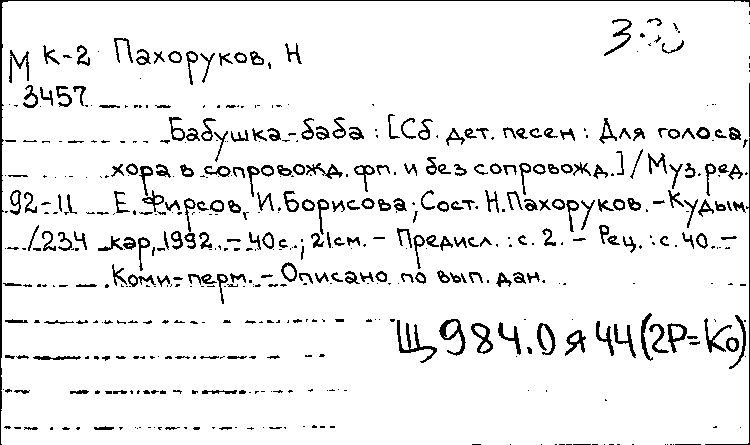 М К-2 Пахоруков, Н
3457
Бабушка-баба : [Сб. дет. песен : Для голоса,
хора в сопровожд. фп. и без сопровожд.] / Муз. ред.
92-11 Е. Фирсов, И. Борисова; Сост. Н. Пахоруков. - Кудым-
/234 кар, 1992. - 40 с.; 21 см. - Предисл. : с. 2. - Рец. : с. 40. -
Коми-перм. - Описано по вып. дан.
Щ984.0я44(2Р=Ко)